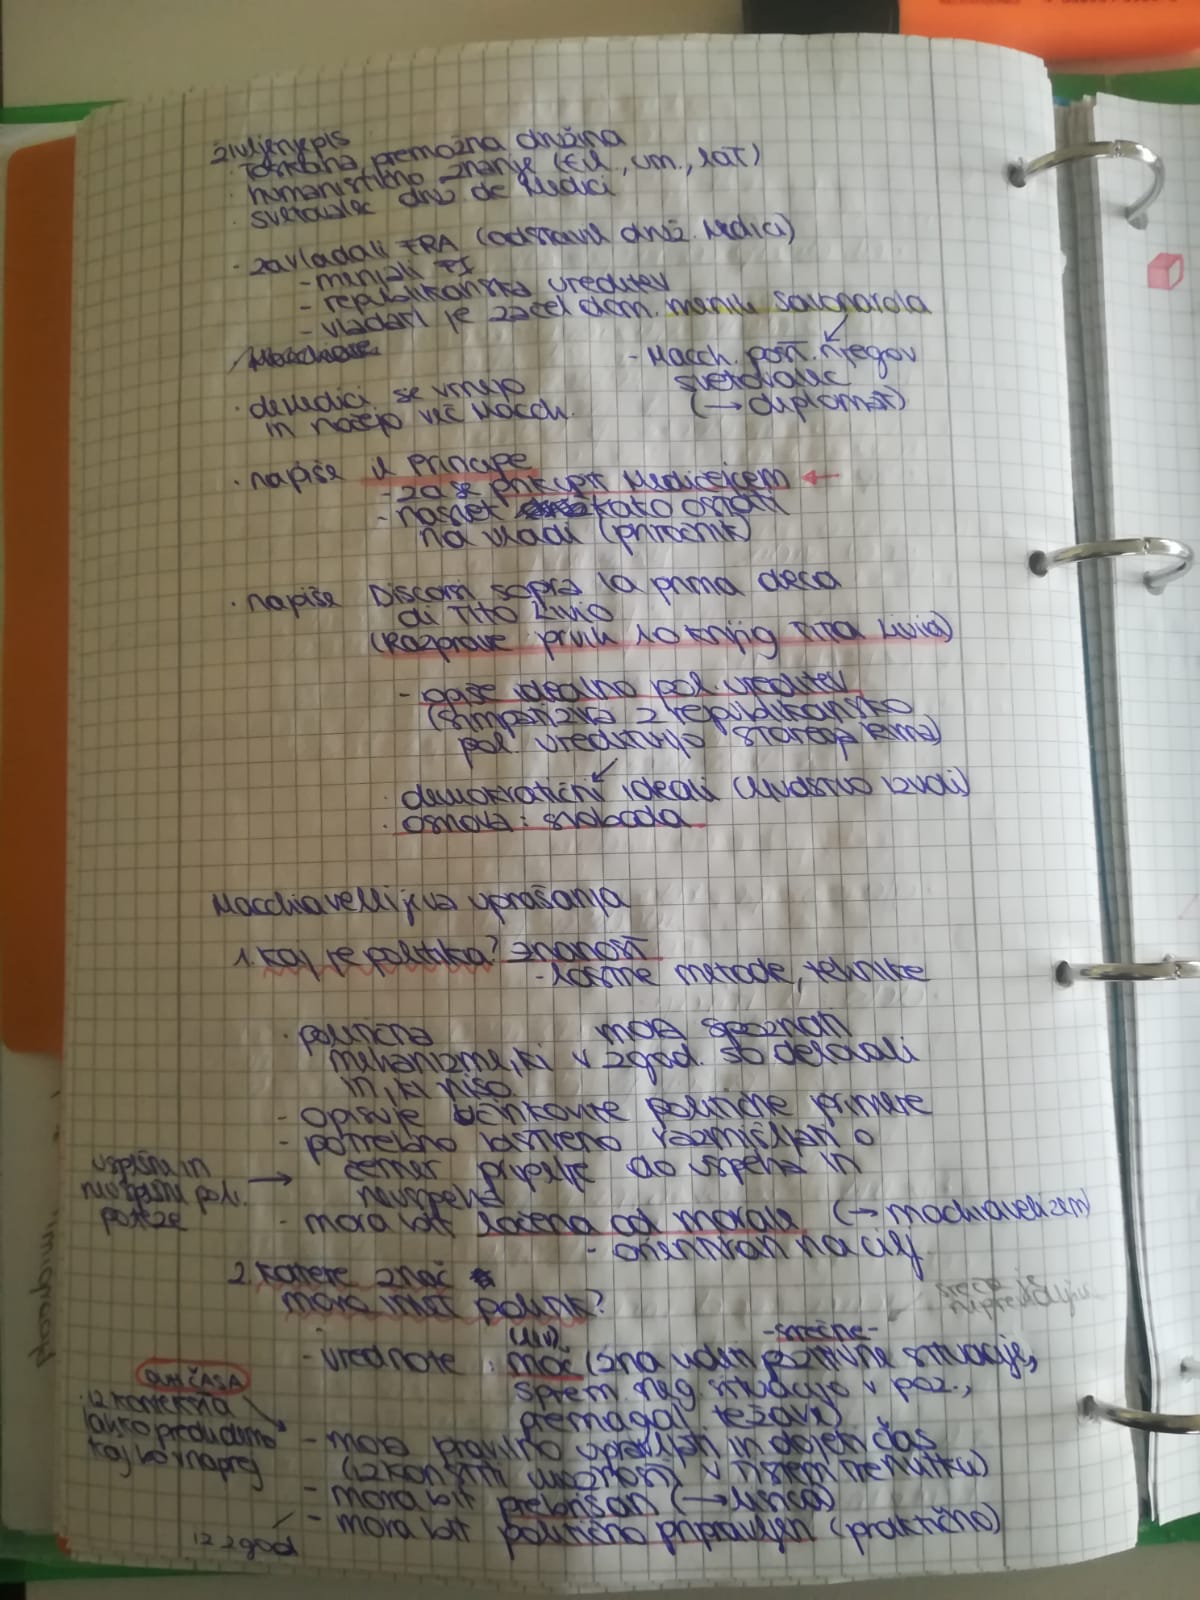 življenjepis
· Toskana, premožna družina
· humanistično znanje (fil., um., lat)
· svetovalec druž. de Medici
· zavladali FRA (odstavili druž. Medici)
- menjali
- republikanska ureditev
- vladati je začel dom. menih Savonarola
- Macch. post. njegov
svetovalec
(→ diplomat)
· de Medici se vrnejo
in nočejo več Macch.
· napiše Il Principe
- za se prikupit Medičejcem ←
- nasvet kako ostati
na vladi (priročnik)
· napiše Discorsi sopra la prima deca
di Tito Livio
(Razprave prvih 10 knjig Tita Livia)
- opiše idealno pol. ureditev
(simpatizira z republikansko
pol. ureditvijo starega Rima)
· demokratični ideali (ljudstvo vodi)
· osnova: svoboda
Macchiavellijeva vprašanja
1. Kaj je politika? znanost
- lastne metode, tehnike
· politična mora spoznati
mehanizme, ki v zgod. so delovali
in, ki niso
- opisuje učinkovite politične primere
- potrebno razmišljati o
čemer pripelje do uspeha in
neuspeha
uspešne in
neuspešne pol.
poteze →
- mora bit ločena od morale (→ machiavelizem)
- orientiran na cilj
2. Katere znač.
mora imeti politik?
- srečne -
- vrednote: moč (zna vodit pozitivne situacije,
sprem. neg. situacijo v poz.,
premagat težave)
duh ČASA
iz konteksta
lahko predvidimo
kaj bo naprej
- mora pravilno upravljati in dojeti čas
(izkoristiti možnosti v tistem trenutku)
- mora bit prebrisan (→ lisica)
- mora bit politično pripravljen (praktično)
iz zgod